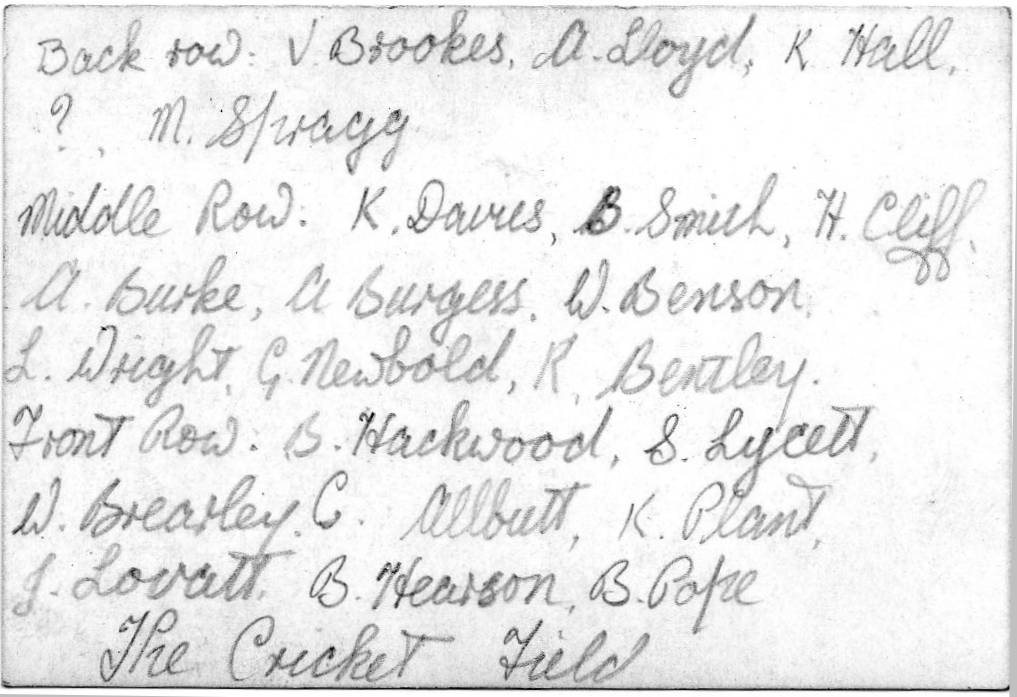 Back row: V Brookes, A. Lloyd, K Hall,
?, M. Spragg
Middle Row: K. Davies, B. Smith, H. Cliff,
A. Burke, A Burgess, W. Benson,
L. Wright, G. Newbold, K, Bentley.
Front Row: B. Hackwood, S. Lycett,
W. Brearley, C. Allbutt, K. Plant,
J. Lovatt, B. Hearson, B. Pope
The Cricket Field